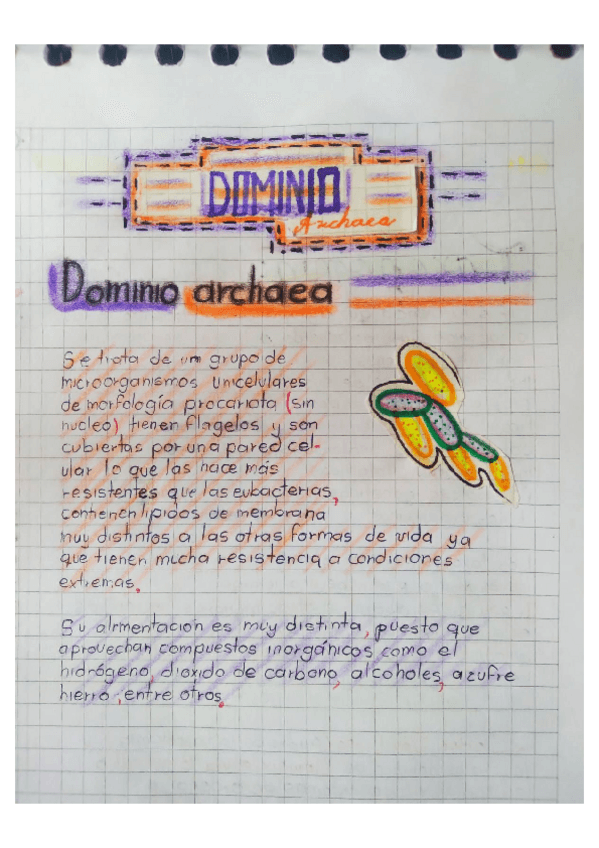 DOMINIO
Archaea
Dominio archaea
Se trata de un grupo de
microorganismos unicelulares
de morfología procariota (sin
nucleo) tienen flagelos y son
cubiertas por una pared cel-
ular lo que las hace más
resistentes que las eubacterias,
contienen lípidos de membrana
muy distintos a las otras formas de vida ya
que tienen mucha resistencia a condiciones
extremas.
Su alimentacion es muy distinta, puesto que
aprovechan compuestos inorgánicos como el
hidrógeno, dioxido de carbono, alcoholes, azufre
hierro, entre otros.